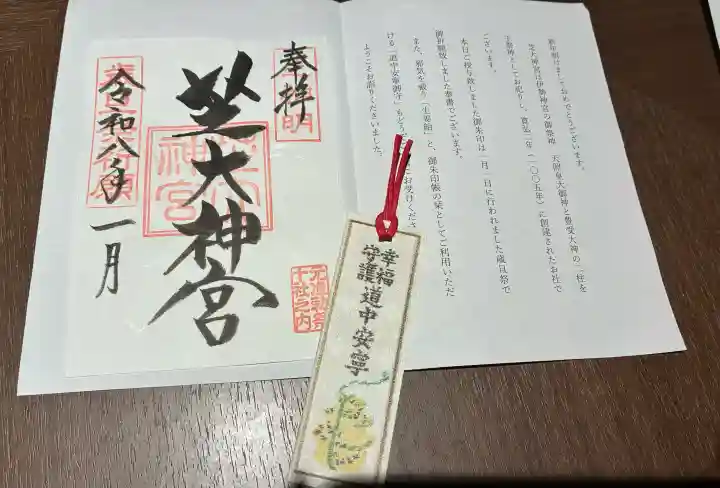 奉拝
芝大神宮
令和八年一月
元准勅祭
十社之内
新年明けましておめでとうございます。
芝大神宮は伊勢神宮の御祭神 天照皇大御神と豊受大神の二柱を
主祭神としてお祀りし、寛弘二年(一〇〇五年)に創建されたお社で
ございます。
本日ご授与致しました御朱印は一月一日に行われました歳旦祭で
御祈願致しました奉書でございます。
また、邪気を祓う「生姜飴」と、御朱印帳の栞としてご利用いただ
ける「道中安寧御守」もどうぞ
にお受けくださ
ようこそお詣りくださいました。
幸福
守護
道中安寧